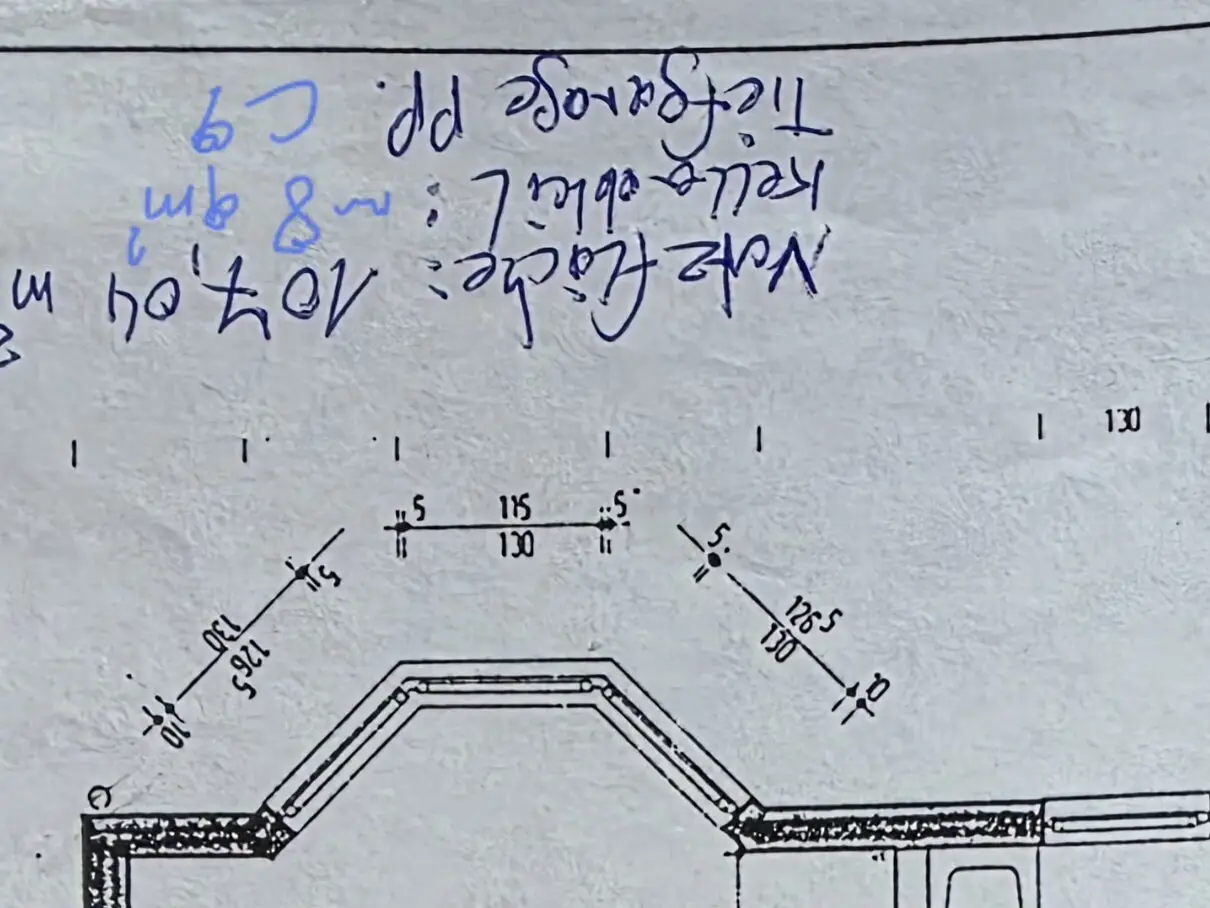 Nutzfläche: 107,04 m²
Kellerabteil: ~8 qm
Tiefgarage pp.
130
5 115 5
130
5
130
126⁵
10
5
126⁵
130